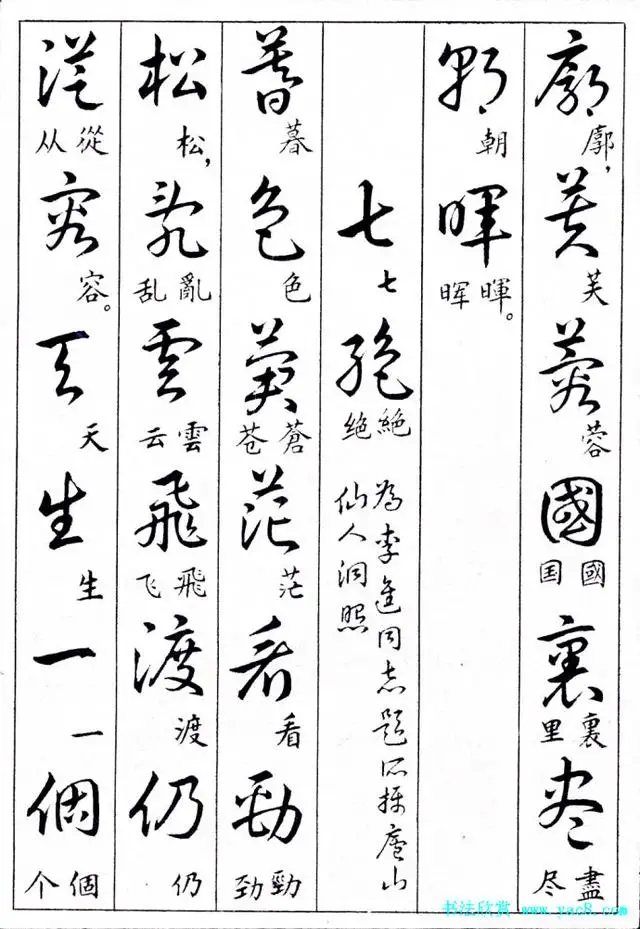 廓芙蓉國裏盡
廓，芙蓉國国裏里盡尽
朝暉
朝暉晖。
七絶
七絶绝
為李進同志題所攝廬山
仙人洞照
暮色蒼茫看勁
暮色蒼苍茫看勁劲
松亂雲飛渡仍
松，亂乱雲云飛飞渡仍
從容天生一個
從从容。天生一個个
书法欣赏 www.yac8.com